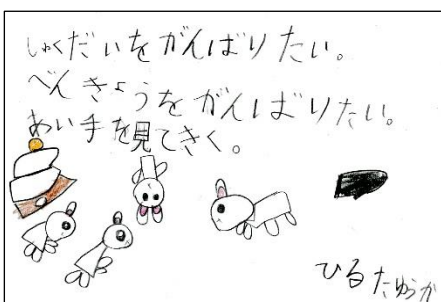 しゅくだいをがんばりたい。
べんきょうをがんばりたい。
あい手を見てきく。
ひるたゆうか